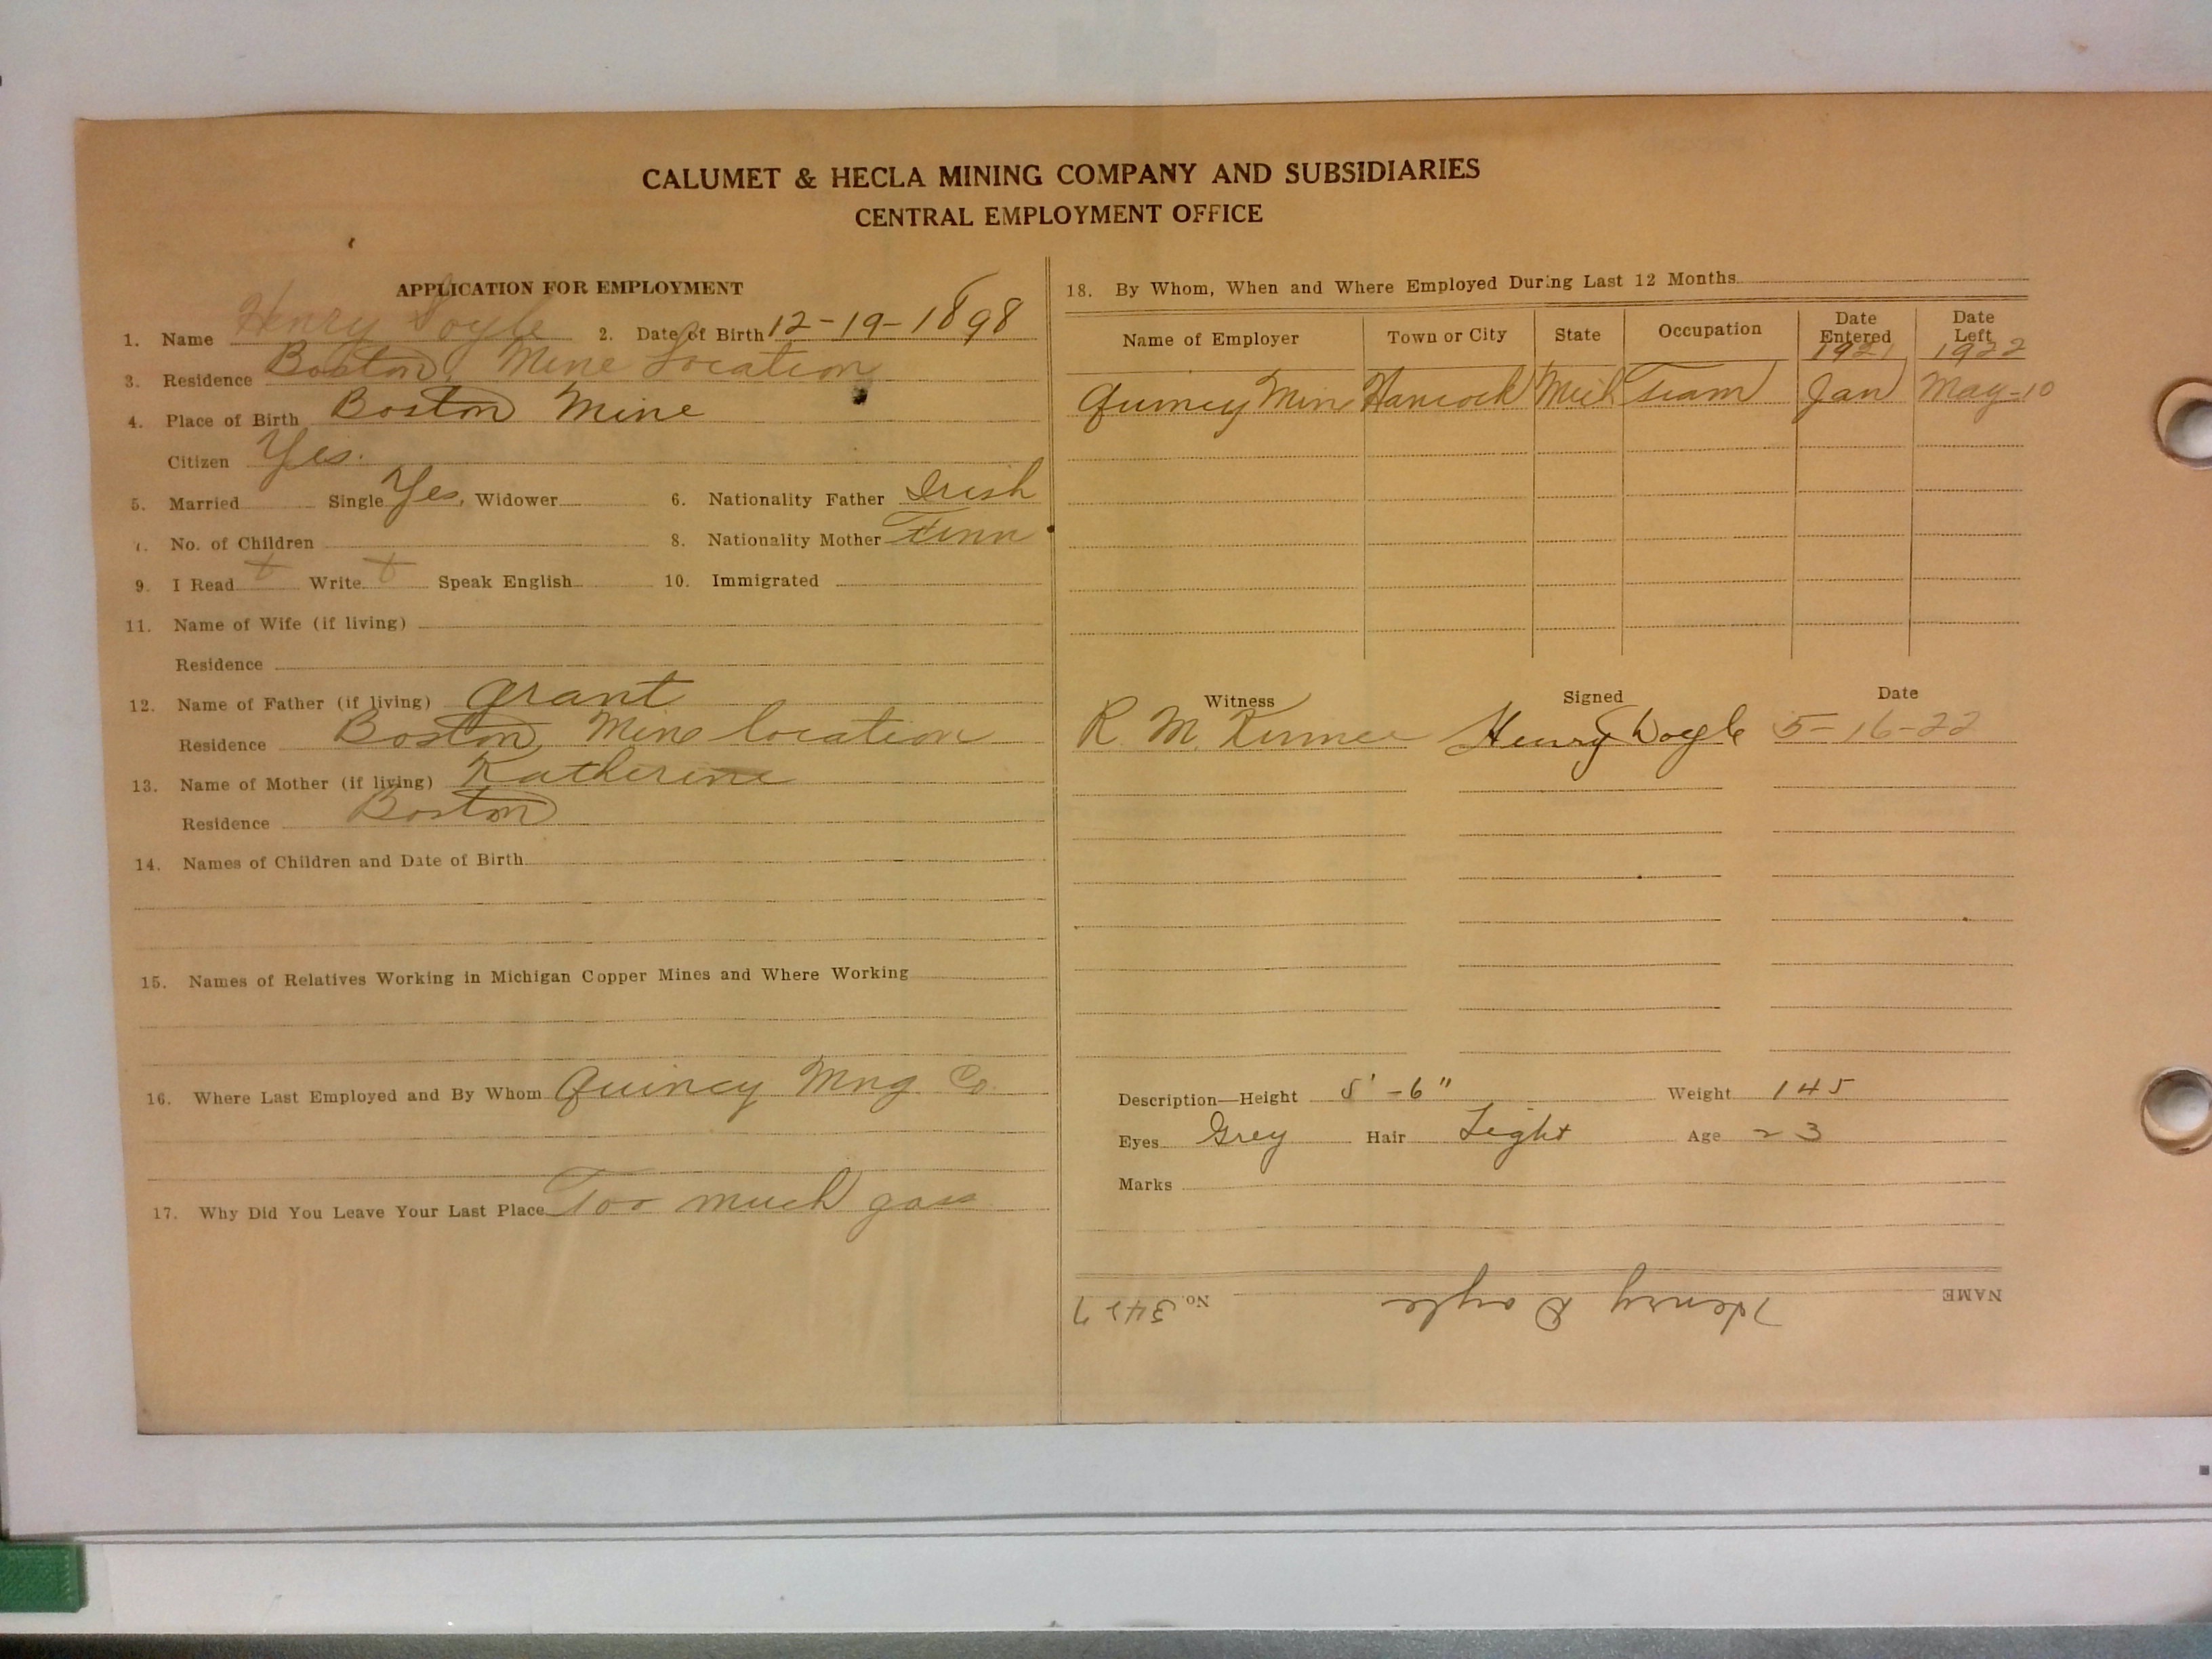 CALUMET & HECLA MINING COMPANY AND SUBSIDIARIES
CENTRAL EMPLOYMENT OFFICE
APPLICATION FOR EMPLOYMENT
1. Name Henry Doyle 2. Date of Birth 12-19-1898
3. Residence Boston Mine Location
4. Place of Birth Boston Mine
Citizen Yes.
5. Married Single Yes, Widower 6. Nationality Father Irish
7. No. of Children 8. Nationality Mother Finn
9. I Read Write Speak English 10. Immigrated
11. Name of Wife (if living)
Residence
12. Name of Father (if living) Grant
Residence Boston Mine location
13. Name of Mother (if living) Katherine
Residence Boston
14. Names of Children and Date of Birth
15. Names of Relatives Working in Michigan Copper Mines and Where Working
16. Where Last Employed and By Whom Quincy Mng Co.
17. Why Did You Leave Your Last Place Too much gass
18. By Whom, When and Where Employed During Last 12 Months
Name of Employer Town or City State Occupation Date Entered Date Left
1921 1922
Quincy Min Hancock Mich Tram Jan May-10
Witness Signed Date
R. M. Henry Doyle 5-16-22
Description—Height 5'-6" Weight 145
Eyes Grey Hair Light Age 23
Marks
NAME Henry Doyle No. 3427